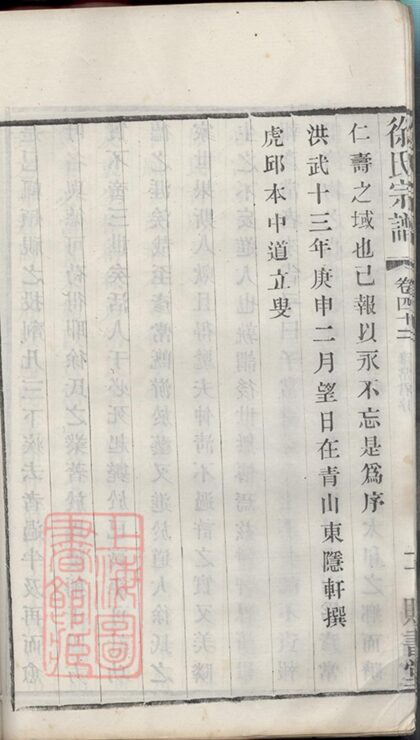 徐氏宗譜
卷四十二
二
仁壽之域也已報以永不忘是爲序
洪武十三年庚申二月望日在青山東隱軒撰
虎邱本中道立叟
上海圖書館藏